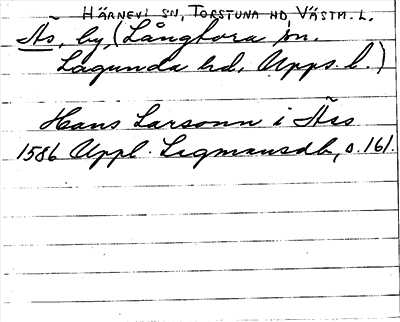 HÄRNEVI SN, TORSTUNA HD, VÄSTM. L.
Ås, by, (Långtora sn.
Lagunda hd, Upps. l.)
Hans Larsonn i Åss
1586 Uppl. Legmansdb, s. 161.